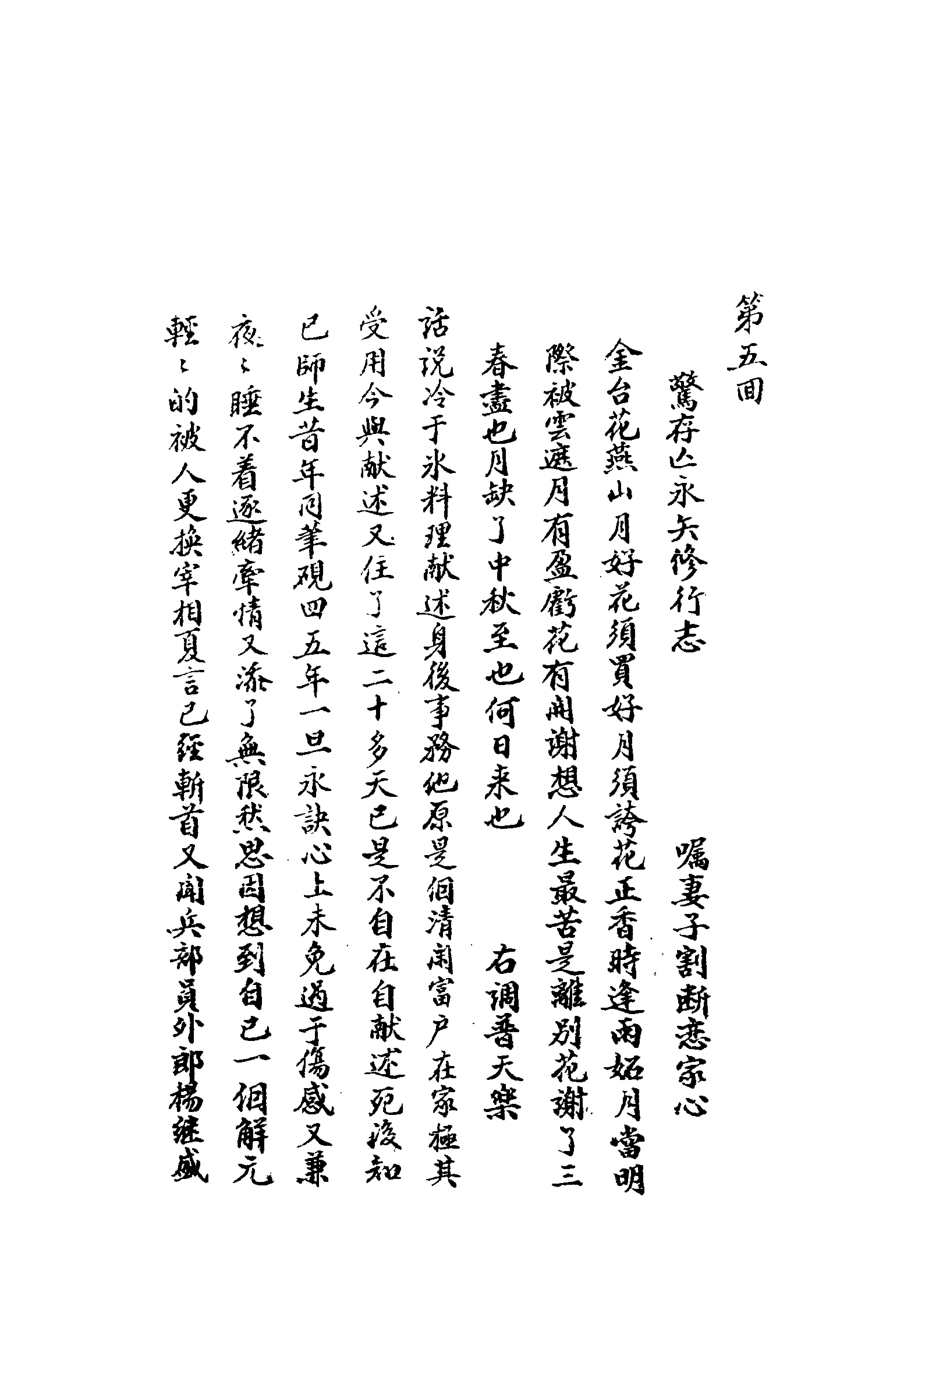 第五回
驚存亡永矢修行志　　囑妻子割断恋家心
金台花燕山月好花須買好月須誇花正香時逢雨妬月當明
際被雲遮月有盈虧花有開謝想人生最苦是離別花謝了三
春盡也月缺了中秋至也何日来也　　右调普天樂
話说冷于氷料理献述身後事務他原是個清闲富户在家極其
受用今與献述又住了這二十多天已是不自在自献述死後知
已師生昔年同筆硯四五年一旦永訣心上未免過于傷感又兼
夜〻睡不着逐緒牽情又添了無限愁思因想到自已一個解元
輕〻的被人更换宰相夏言已經斬首又聞兵部員外郎楊継盛